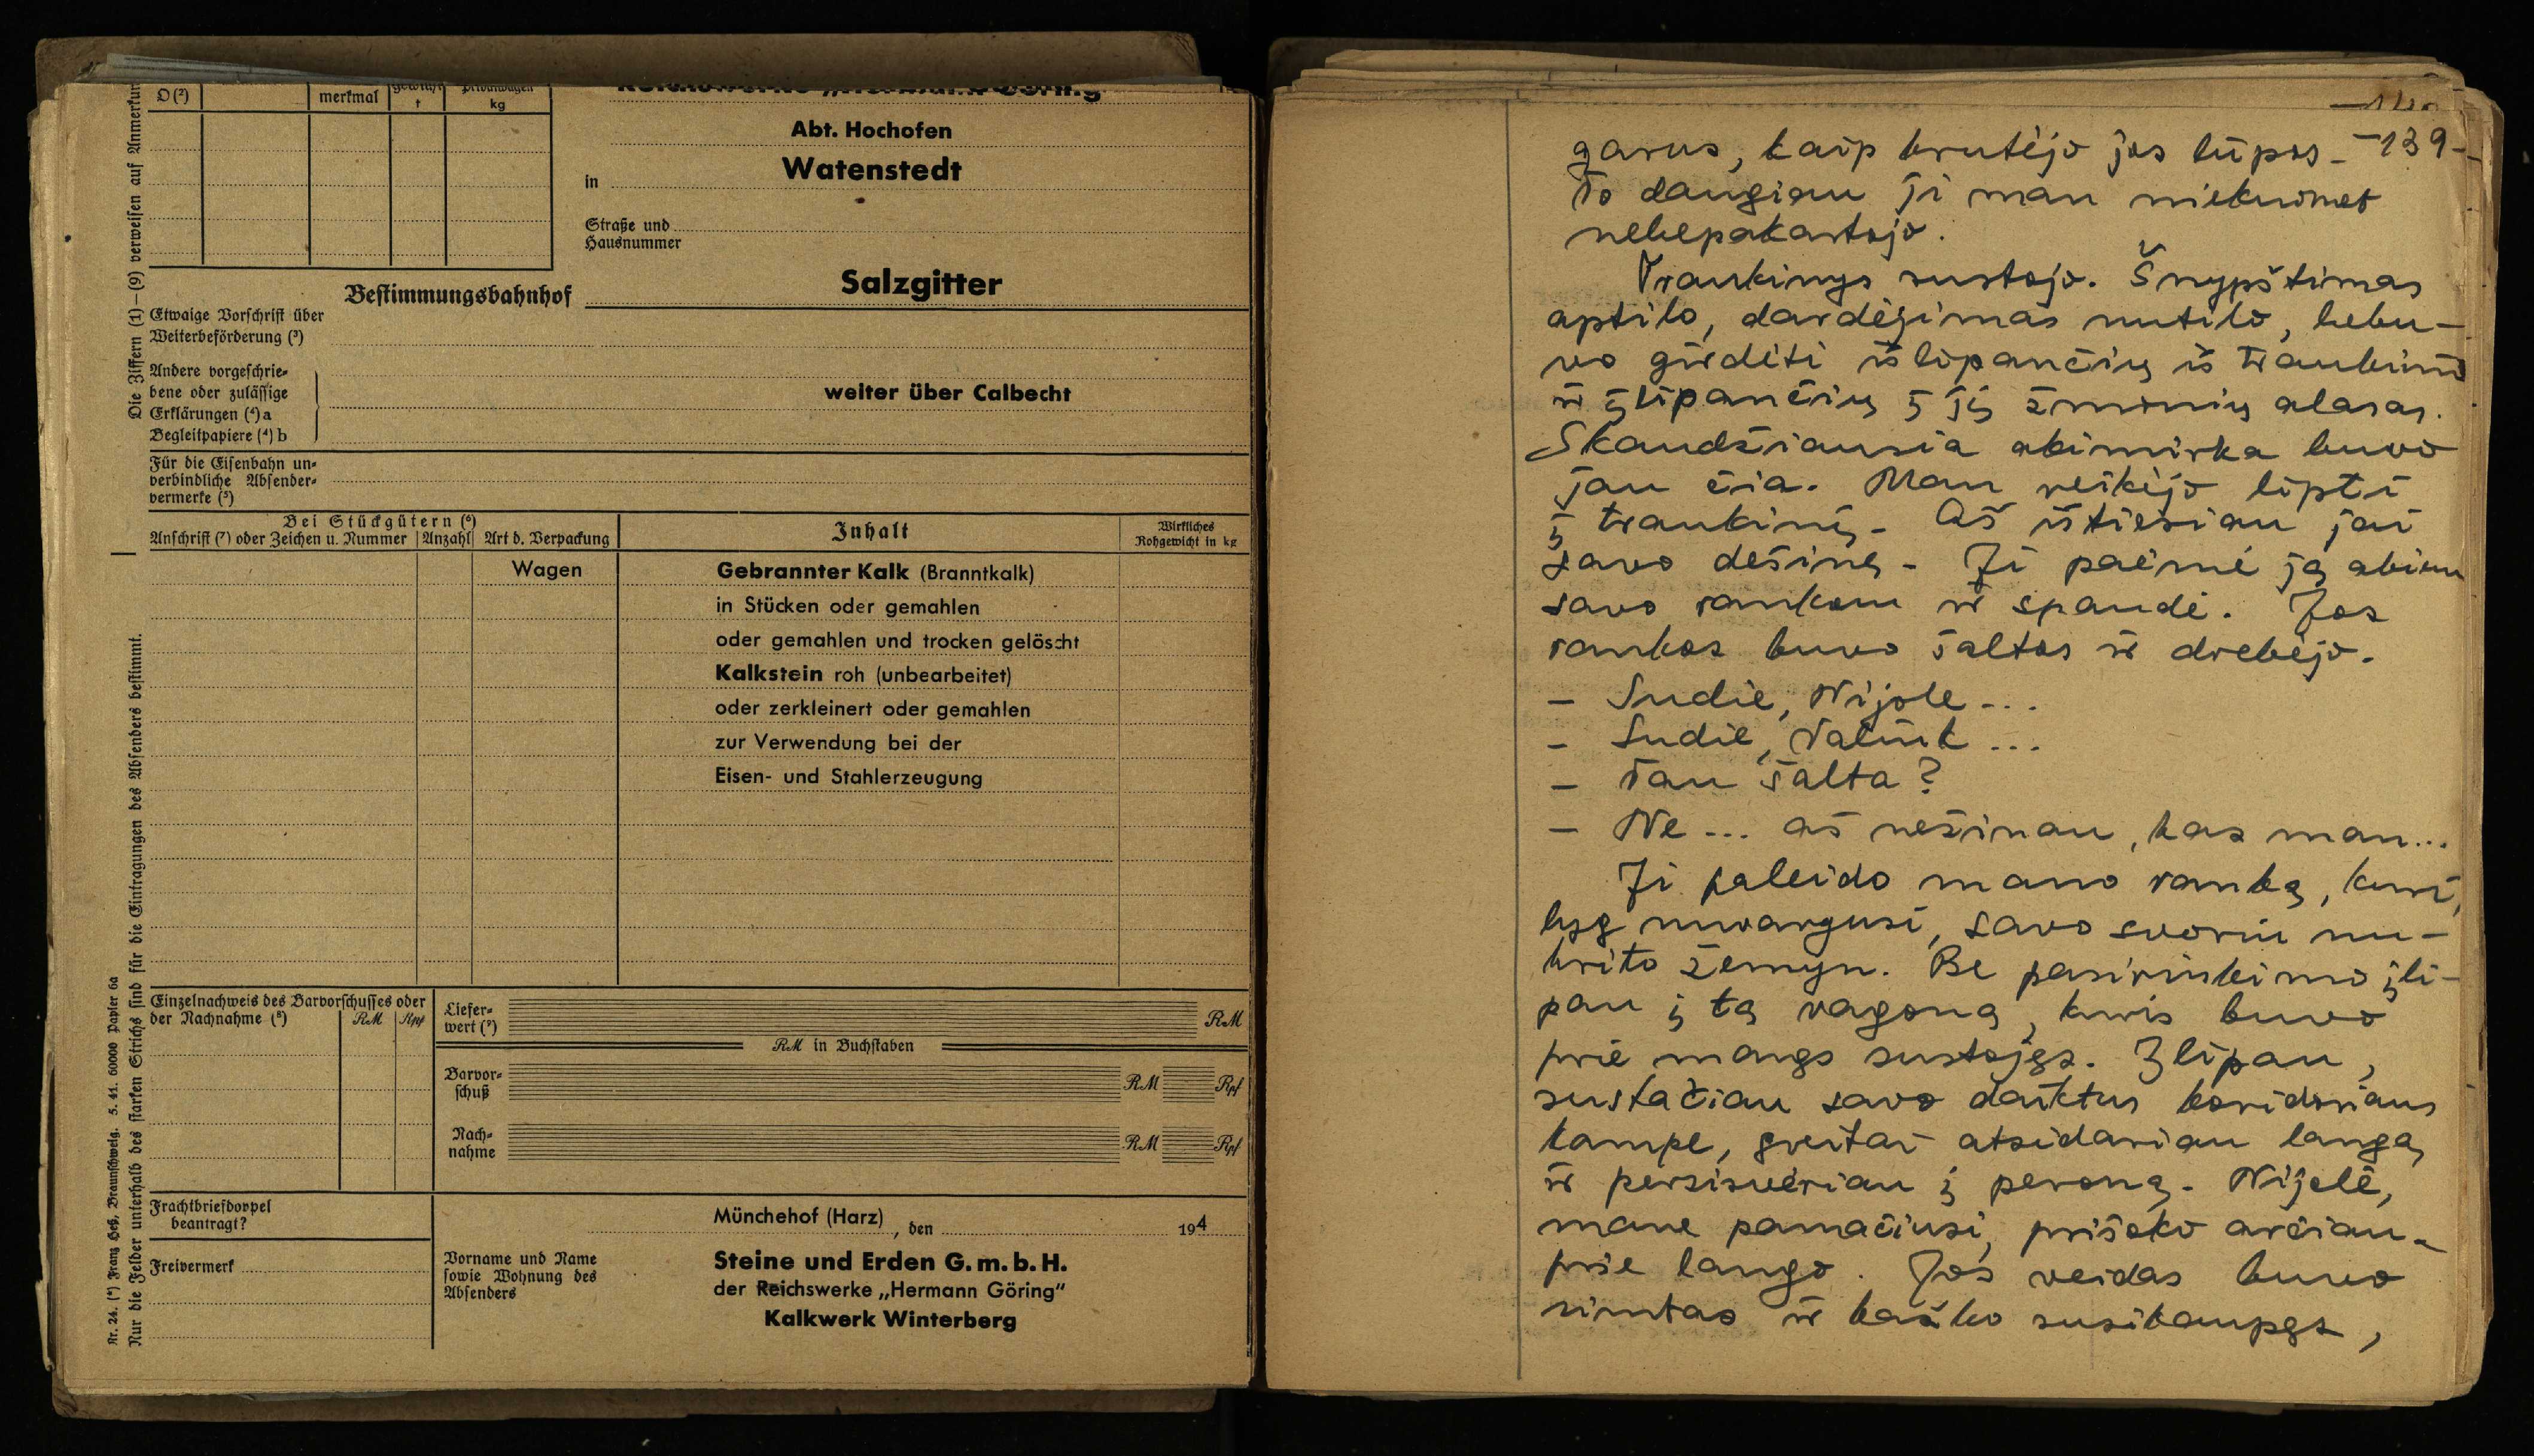 D (²)
merkmal
t
kg
Abt. Hochofen
in Watenstedt
Straße und
Hausnummer
Bestimmungsbahnhof Salzgitter
Etwaige Vorschrift über
Weiterbeförderung (³)
Andere vorgeschrie-
bene oder zulässige
Erklärungen (⁴) a
Begleitpapiere (⁴) b
weiter über Calbecht
Für die Eisenbahn un-
verbindliche Absender-
vermerke (⁵)
Bei Stückgütern (⁶)
Anschrift (⁷) oder Zeichen u. Nummer Anzahl Art d. Verpackung
Inhalt
Wirkliches
Rohgewicht in kg
Wagen
Gebrannter Kalk (Branntkalk)
in Stücken oder gemahlen
oder gemahlen und trocken gelöscht
Kalkstein roh (unbearbeitet)
oder zerkleinert oder gemahlen
zur Verwendung bei der
Eisen- und Stahlerzeugung
Einzelnachweis des Barvorschusses oder
der Nachnahme (⁸) RM Rpf
Liefer-
wert (⁹) RM
RM in Buchstaben
Barvor-
schuß RM Rpf
Nach-
nahme RM Rpf
Frachtbriefdoppel
beantragt?
Freivermerk
Münchehof (Harz), den 194
Vorname und Name
sowie Wohnung des
Absenders
Steine und Erden G.m.b.H.
der Reichswerke „Hermann Göring"
Kalkwerk Winterberg
Die Ziffern (1)—(9) verweisen auf
Nur die Felder unterhalb des starken Strichs sind für die Eintragungen des Absenders bestimmt.
Nr. 24. (*) Franz Heß, Braunschweig. 5. 41. 60000 Papier 6a
-139-
garus, kaip krutėjo jos lūpos.
To daugiau ji man niekuomet
nebepakartojo.
Traukinys sustojo. Šnypštimas
aptilo, dardėjimas nutilo, bebu-
vo girdėti išlipančių iš traukinio
ir įlipančių į jį žmonių alasas.
Skaudžiausia akimirka buvo
jau čia. Man reikėjo lipti
į traukinį. Aš ištiesiau jai
savo dešinę. Ji paėmė ją abiem
savo rankom ir spaudė. Jos
rankos buvo šaltos ir drebėjo.
— Sudie, Nijole...
— Sudie, Valiuk...
— Tau šalta?
— Ne... aš nežinau, kas man...
Ji paleido mano ranką, kuri,
lyg nuvargusi, savo svoriu nu-
krito žemyn. Be pasirinkimo įli-
pau į tą vagoną, kuris buvo
prie manęs sustojęs. Įlipau,
sustačiau savo daiktus koridoriaus
kampe, greitai atsidariau langą
ir persisvėriau į peroną. Nijolė,
mane pamačiusi, prišoko arčiau
prie lango. Jos veidas buvo
rimtas ir kažko susikaupęs,